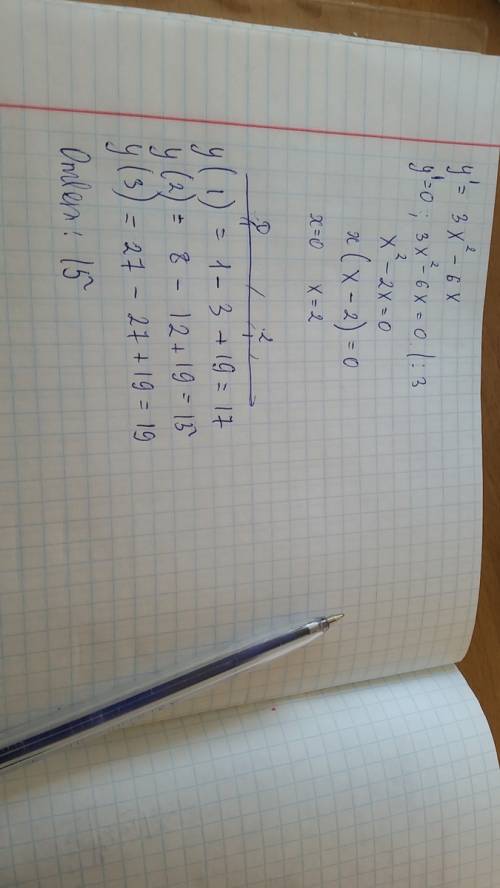 y' = 3x² - 6x
y'=0; 3x²-6x=0 |:3
x²-2x=0
x(x-2)=0
x=0 x=2
0 2
y(1) = 1-3+19=17
y(2) = 8-12+19=15
y(3) = 27-27+19=19
Ответ: 15